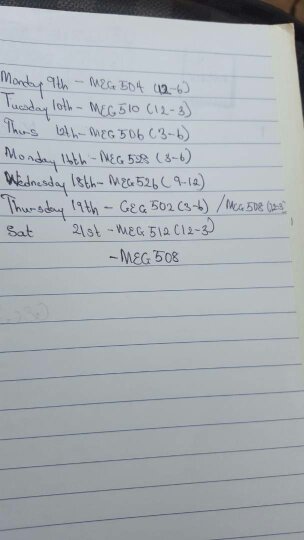 Monday 9th - MEG 504 (12-6)
Tuesday 10th - MEG 510 (12-3)
Thurs 12th - MEG 506 (3-6)
Monday 16th - MEG 528 (3-6)
Wednesday 18th - MEG 526 (9-12)
Thursday 19th - GEG 502 (3-6) / MEG 508 (12-3)
Sat 21st - MEG 512 (12-3)
- MEG 508